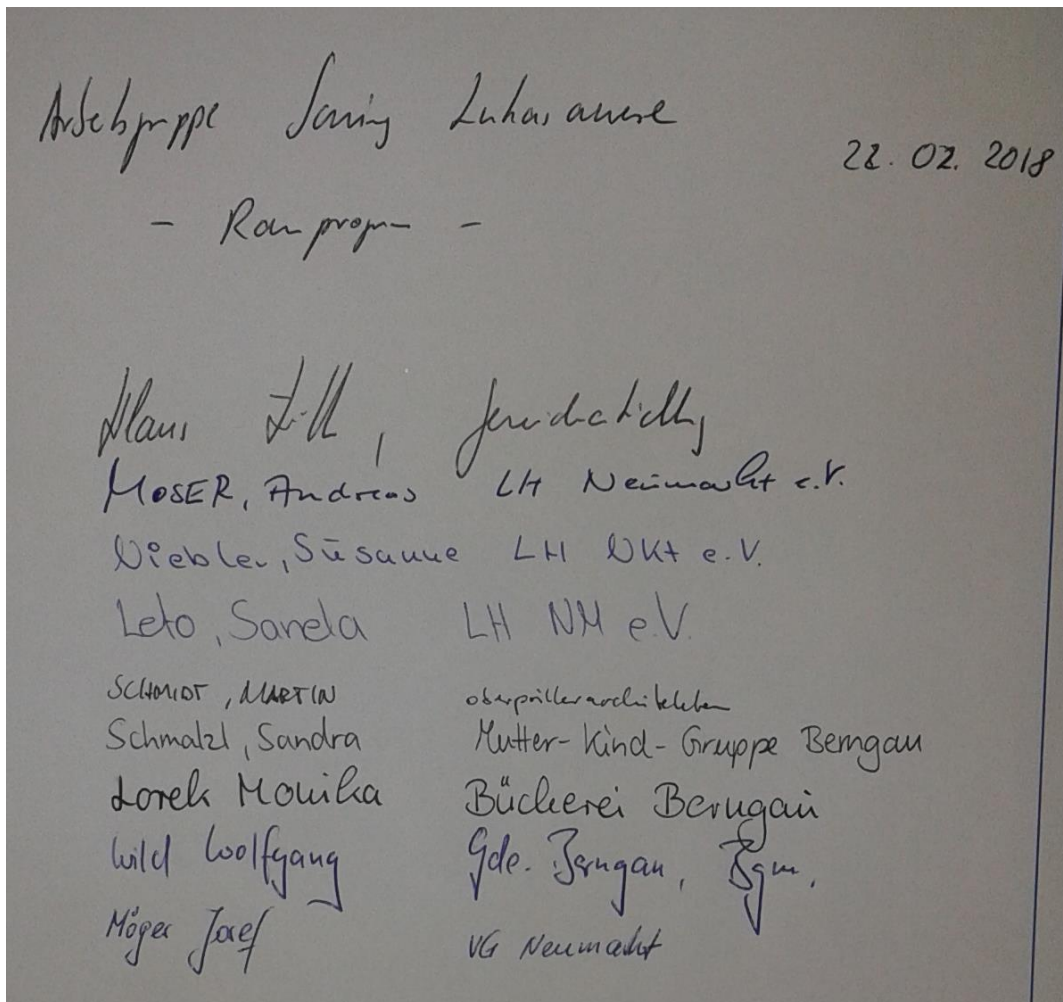 Arbeitsgruppe Lukasanwese
22. 02. 2018
- Raumprogramm -
Klaus Zill,
MOSER, Andreas LH Neumarkt e.V.
Niebler, Susanne LH Nkt e.V.
Leto, Sanela LH NM e.V.
SCHMIDT, MARTIN oberprillerarchitekten
Schmalzl, Sandra Mutter-Kind-Gruppe Berngau
Lorek Monika Bücherei Berngau
Wild Wolfgang Gde. Berngau, Bgm.
Möger Josef VG Neumarkt